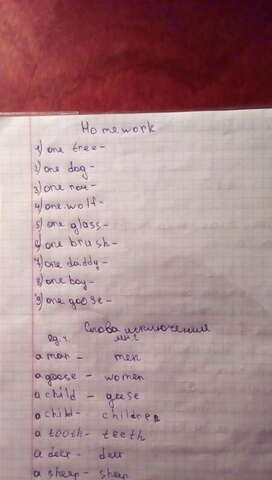 Homework
1) one tree-
2) one dog-
3) one
4) one wolf-
5) one glass-
6) one brush-
7) one daddy-
8) one boy-
9) one goose-
Слова исключения
ед.ч. мн.ч
a man - men
a goose - women
a child - geese
a child - children
a tooth - teeth
a deer - deer
a sheep - sheep